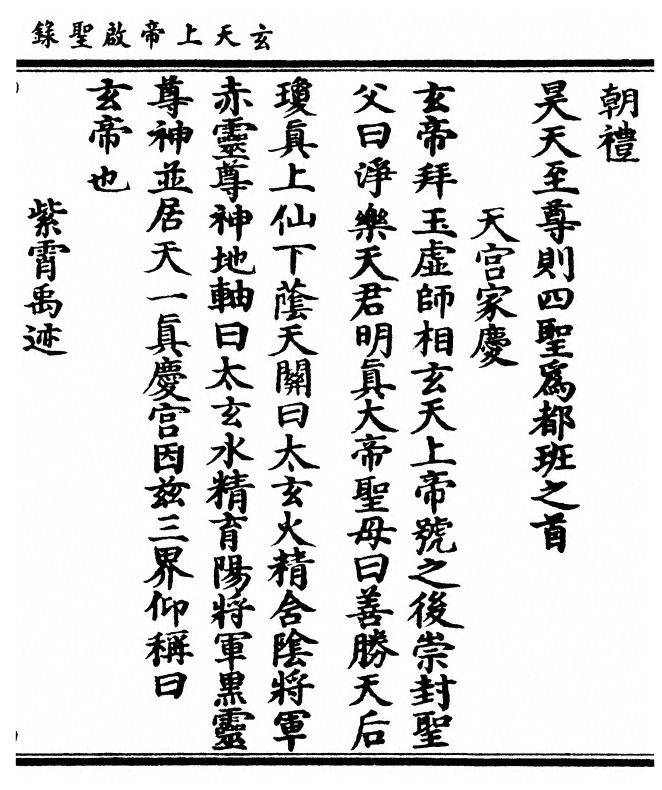 玄天上帝啟聖錄
朝禮
昊天至尊則四聖爲都班之首
天宮家慶
玄帝拜玉虛師相玄天上帝號之後崇封聖
父曰淨樂天君明眞大帝聖母曰善勝天后
瓊眞上仙下蔭天關曰太玄火精含陰將軍
赤靈尊神地軸曰太玄水精育陽將軍黑靈
尊神並居天一眞慶宮因茲三界仰稱曰
玄帝也
紫霄禹迹